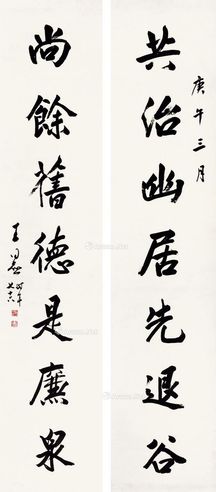 共治幽居先退谷
庚午三月
尚餘舊德是廉泉
王蘧常